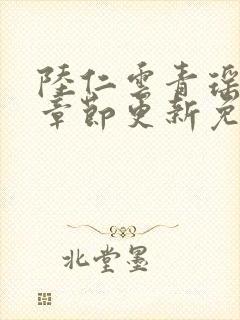 陸仁雲青瑶
章節更新免
北堂墨